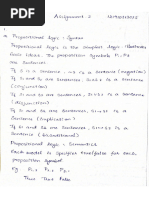 Assignment 2
Propositional Logic - Syntax
Propositional logic is the simplest logic
basic idea. The proposition symbols P1, P2
are sentences.
If S is a sentence, ¬S is a sentence (negation)
If S1 and S2 are sentences, S1 ∧ S2 is a sentence
(conjunction)
If S1 and S2 are sentences, S1 ∨ S2 is a sentence
(Disjunction)
If S1 and S2 are sentences, S1 => S2 is a
sentence (Implication)
Propositional Logic - Semantics
Each model is specifies true/false for each
proposition symbol
Eg P1,2 P2,2 P3,1
True True False